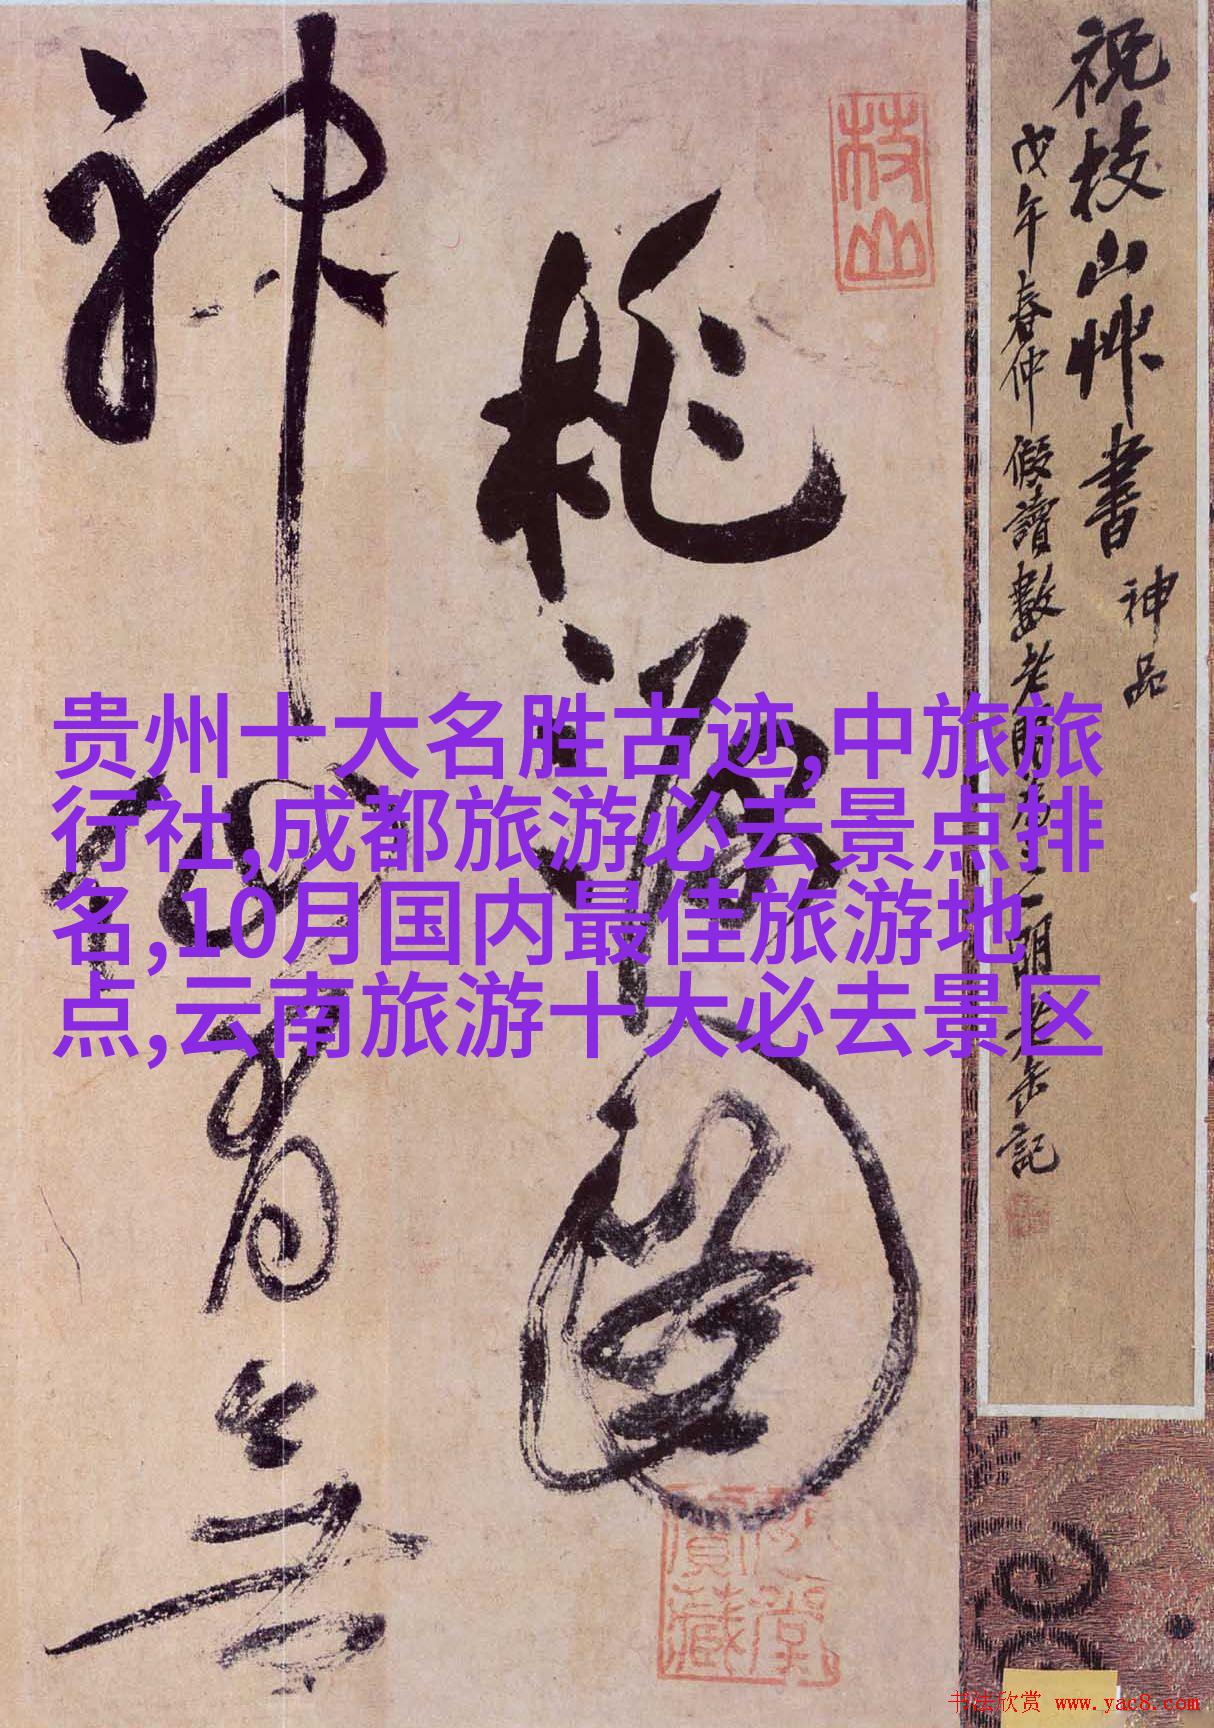 祝枝山艸書 神品
戊午春仲假讀數老
老缶記
枝山
桃源圖
神仙有無
贵州十大名胜古迹,中旅旅
行社,成都旅游必去景点排
名,10月国内最佳旅游地
点,云南旅游十大必去景区
书法欣赏 www.yac8.com